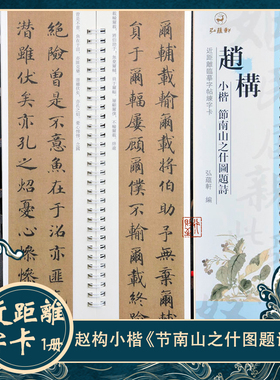 弘蕴軒
近距離臨摹字帖練字卡
趙構
小楷 節南山之什圖題詩
弘蘊軒 編
爾輔載輸爾載將伯助予無棄爾輔
員于爾輻屢顧爾僕不輸爾載終
絶險曾是不意魚在于沼亦匪
潛雖伏矣亦孔之炤憂心慘慘
近距離
字卡 1册
赵构小楷《节南山之什图题